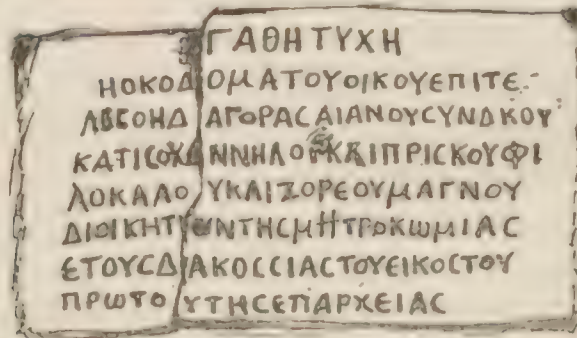 ΓΑΘΗ ΤΥΧΗ
ΗΟΚΟΔΟΜΑΤΟΥΟΙΚΟΥΕΠΙΤΕ
ΑΓΟΡΑϹΑΙΑΝΟΥϹΥΝΔΚΟΥ
ΚΑΙΠΡΙϹΚΟΥΦΙ
ΛΟΚΑΛΟΥΚΑΙΖΟΡΕΟΥΜΑΓΝΟΥ
ΔΙΟΙΚΗΤΩΝΤΗϹΜΗΤΡΟΚΩΜΙΑϹ
ΕΤΟΥϹΔΙΑΚΟϹϹΙΑϹΤΟΥΕΙΚΟϹΤΟΥ
ΠΡΩΤΟΥΤΗϹΕΠΑΡΧΕΙΑϹ